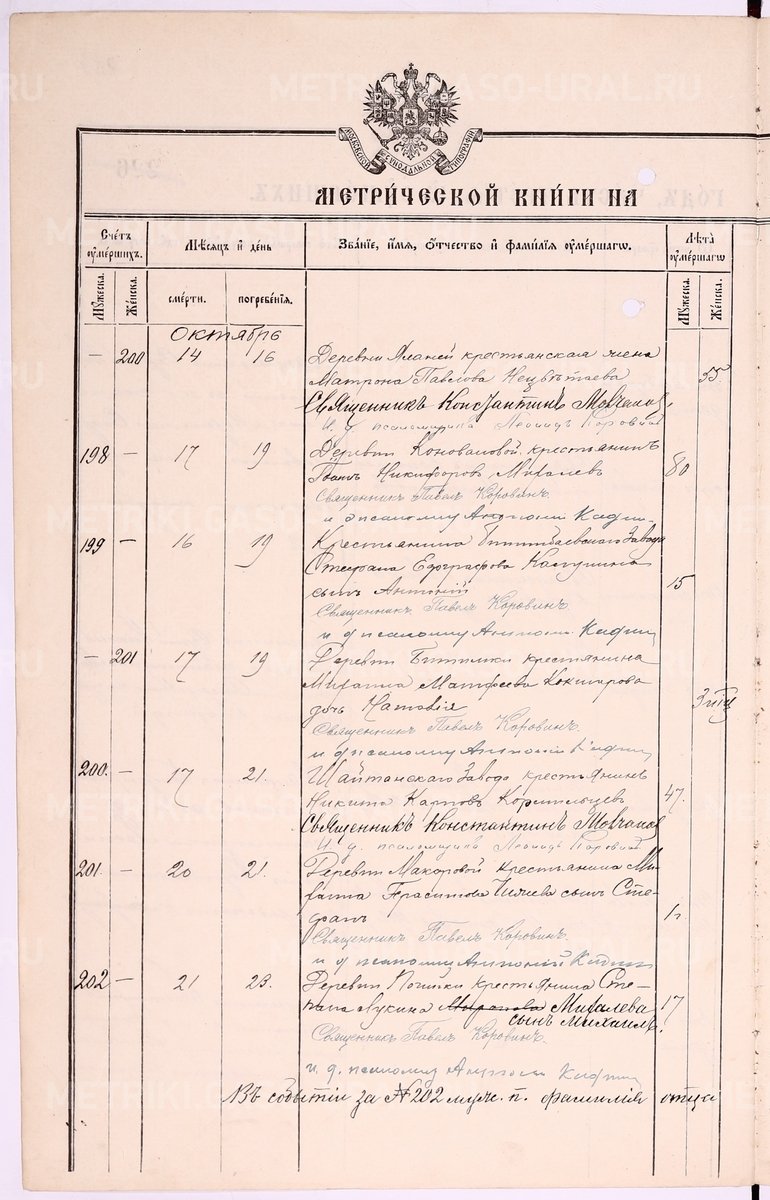 МОСКОВСКОЙ СѴНОДАЛЬНОЙ ТИПОГРАФІИ
МЕТРИ́ЧЕСКОЙ КНИ́ГИ НА
Сче́тъ ᲂу҆ме́ршихъ.
Мѣ́сяцъ и҆ де́нь
Зва́нїе, и҆́мѧ, ѻ҆́тчество и҆ фами́лїѧ ᲂу҆ме́ршагѡ.
Лѣ́та ᲂу҆ме́ршагѡ
Мꙋ́жеска.
Же́нска.
сме́рти.
погребе́нїѧ.
Мꙋ́жеска.
Же́нска.
Октябрь
— 200 14 16 Деревни крестьянская жена
Матрона Павлова Нецвѣтаева 55
Священникъ Константинъ Молчанов
И. д. псаломщика Леонидъ Коровин
198 — 17 19 Деревни Коноваловой крестьянинъ
Іоаннъ Никифоровъ Михалевъ 80
Священникъ Павелъ Коровинъ.
и д псаломщ Антоній
199 — 16 19 Крестьянина Завода
Стефана Евграфова
сынъ Антоній 15
Священникъ Павелъ Коровинъ.
и д псаломщ Антоній
— 201 17 19 Деревни Битимки крестянина
Михаила Матѳеева Кокшарова
дочь 3
Священникъ Павелъ Коровинъ.
и д псаломщ Антоній
200. — 17 21. Шайтанскаго Завода крестьянинъ
Никита Карповъ 47.
Священникъ Константинъ Молчанов
И. д. псаломщика Леонидъ Коровин
201. — 20 21. Деревни Макаровой крестьянина Ми-
хаила Герасимова сынъ Сте-
фанъ
Священникъ Павелъ Коровинъ.
и д псаломщ Антоній
202 — 21 23. Деревни крестьянина Сте-
пана Лукина Миронова Михалева 17
сынъ Михаилъ.
Священникъ Павелъ Коровинъ.
и. д. псаломщ Антоній
Въ событіи за № 202 муж. п. фамилія отца